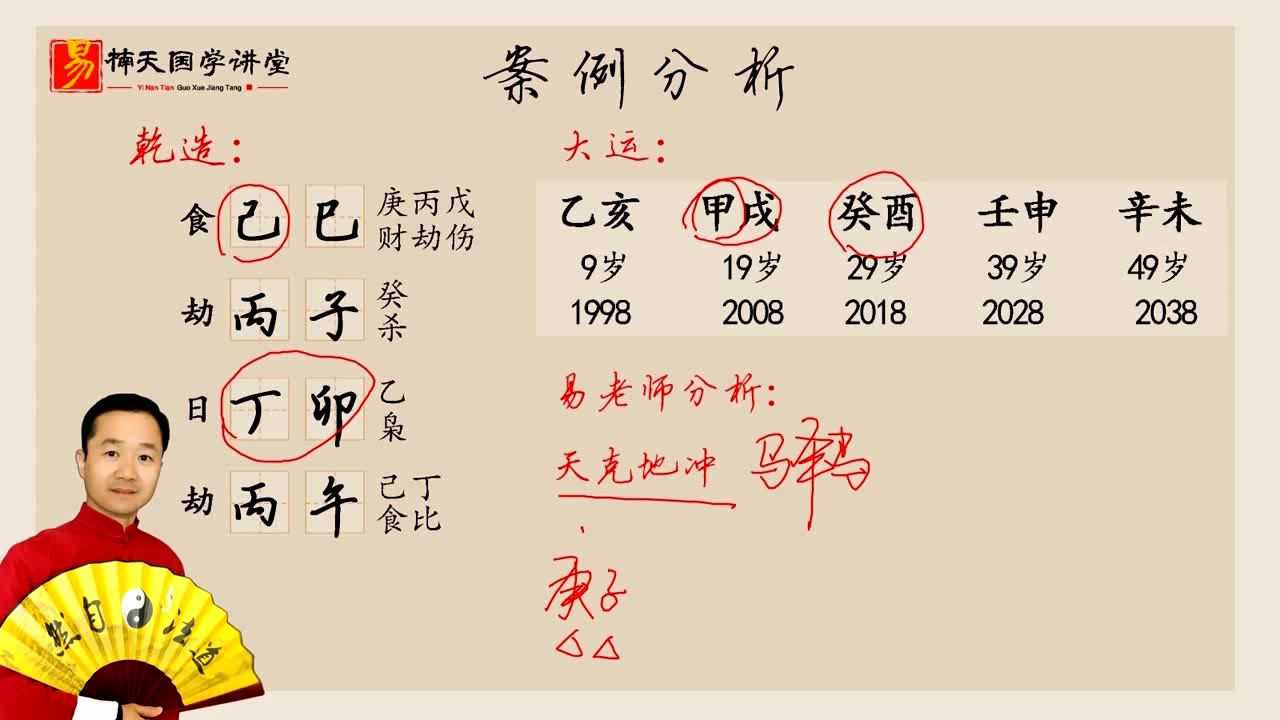 易 楠天国学讲堂
Yi Nan Tian Guo Xue Jiang Tang
案例分析
乾造：
食 己 巳 庚丙戊
财劫伤
劫 丙 子 癸
杀
日 丁 卯 乙
枭
劫 丙 午 己丁
食比
大运：
乙亥 甲戌 癸酉 壬申 辛未
9岁 19岁 29岁 39岁 49岁
1998 2008 2018 2028 2038
易老师分析：
天克地冲 马
庚子
道法自然